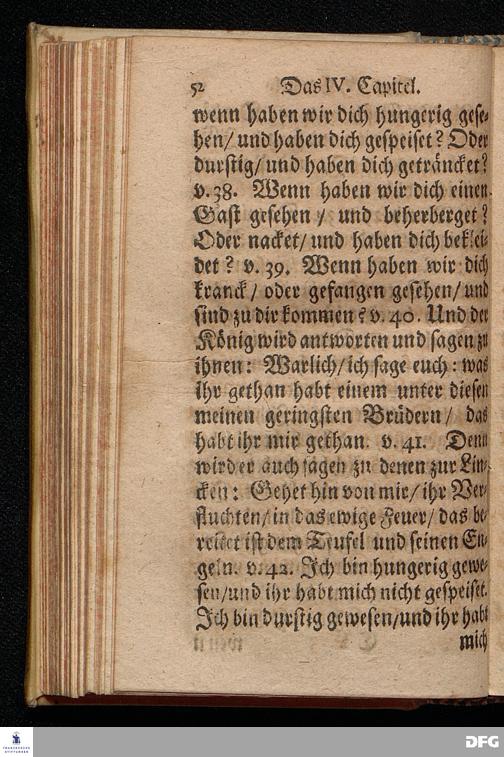 52 Das IV. Capitel.
wenn haben wir dich hungerig gese-
hen/ und haben dich gespeiset? Oder
durstig/ und haben dich geträncket?
v. 38. Wenn haben wir dich einen
Gast gesehen/ und beherberget?
Oder nacket/ und haben dich beklei-
det? v. 39. Wenn haben wir dich
kranck/ oder gefangen gesehen/ und
sind zu dir kommen? v. 40. Und der
König wird antworten und sagen zu
ihnen: Warlich/ ich sage euch: was
ihr gethan habt einem unter diesen
meinen geringsten Brüdern/ das
habt ihr mir gethan. v. 41. Denn
wird er auch sagen zu denen zur Lin-
cken: Gehet hin von mir/ ihr Ver-
fluchten/ in das ewige Feuer/ das be-
reitet ist dem Teufel und seinen En-
geln. v. 42. Ich bin hungerig gewe-
sen/ und ihr habt mich nicht gespeiset.
Ich bin durstig gewesen/ und ihr habt
mich
FRANCKESCHE
STIFTUNGEN
DFG